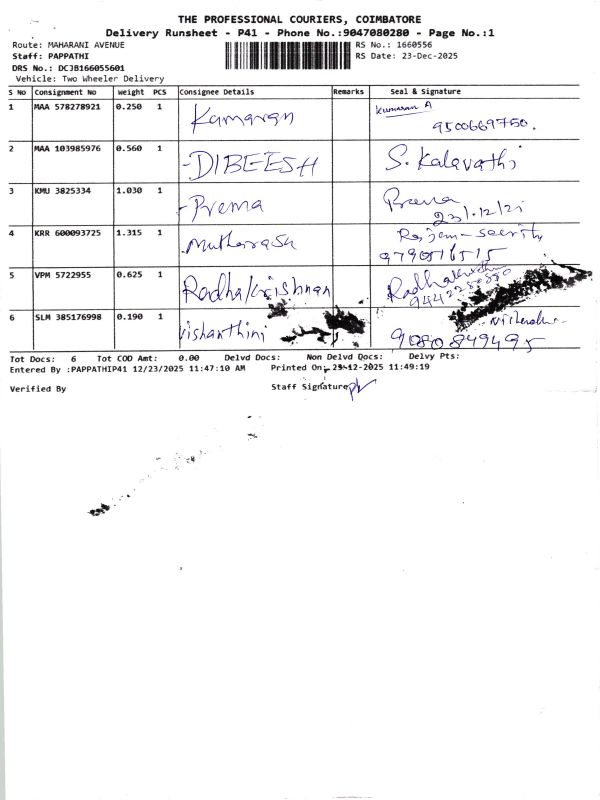 THE PROFESSIONAL COURIERS, COIMBATORE
Delivery Runsheet - P41 - Phone No.:9047080280 - Page No.:1
Route: MAHARANI AVENUE RS No.: 1660556
Staff: PAPPATHI RS Date: 23-Dec-2025
DRS No.: DCJB166055601
Vehicle: Two Wheeler Delivery
S No Consignment No Weight PCS Consignee Details Remarks Seal & Signature
1 MAA 578278921 0.250 1 Kumaran Kumaran A
9500669750.
2 MAA 103985976 0.560 1 -DIBEESH S. Kalavathi
3 KMU 3825334 1.030 1 -Prema Prema
23/12/25
4 KRR 600093725 1.315 1
5 VPM 5722955 0.625 1 Radhakrishnan Radhakrishnan
6 SLM 385176998 0.190 1 Vishanthini
9080849495
Tot Docs: 6 Tot COD Amt: 0.00 Delvd Docs: Non Delvd Docs: Delvy Pts:
Entered By :PAPPATHIP41 12/23/2025 11:47:10 AM Printed On: 23-12-2025 11:49:19
Verified By Staff Signature